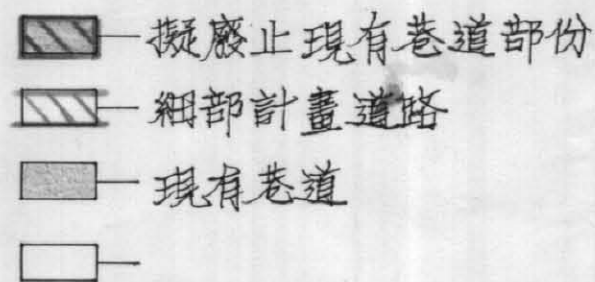 擬廢止現有巷道部份
細部計畫道路
現有巷道